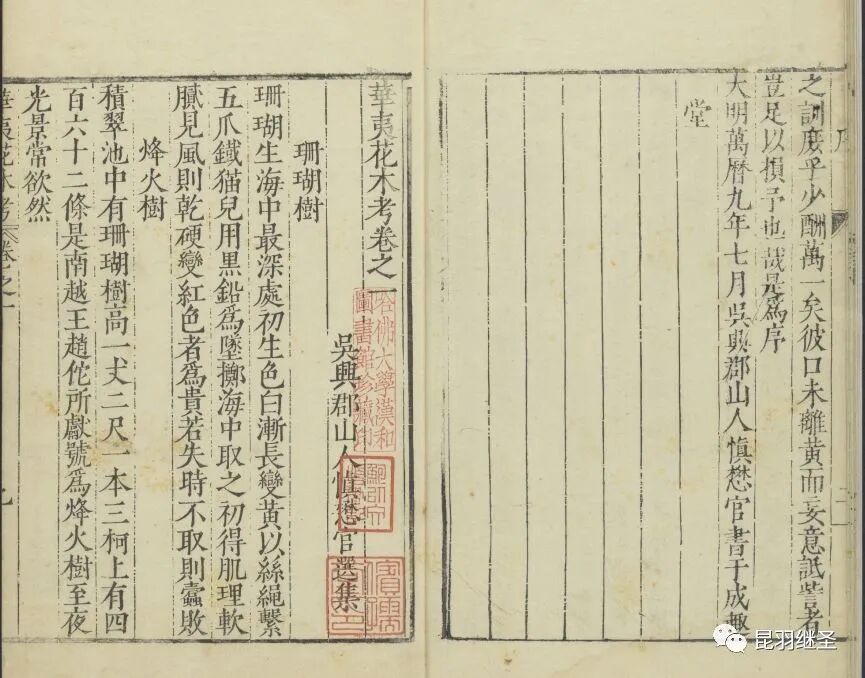 之訓庶乎少酬萬一矣彼口未離黃而妄意詆訾者
豈足以損予也哉是爲序
大明萬曆九年七月吳興郡山人慎懋官書于成趣
堂
華夷花木考卷之一
吳興郡山人慎懋官選集
哈佛大學漢和
圖書館珍藏印
珊瑚樹
珊瑚生海中最深處初生色白漸長變黃以絲繩繫
五爪鐵猫兒用黑鉛爲墜擲海中取之初得肌理軟
膩見風則乾硬變紅色者爲貴若失時不取則蠹敗
烽火樹
積翠池中有珊瑚樹高一丈二尺一本三柯上有四
百六十二條是南越王趙佗所獻號爲烽火樹至夜
光景常欲然
華夷花木考 卷之一
昆羽继圣